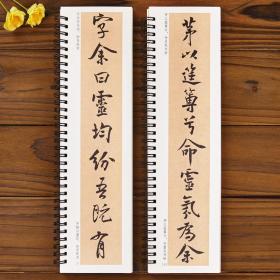 茅以筳篿兮命靈氛爲余
字余曰靈均紛吾既有